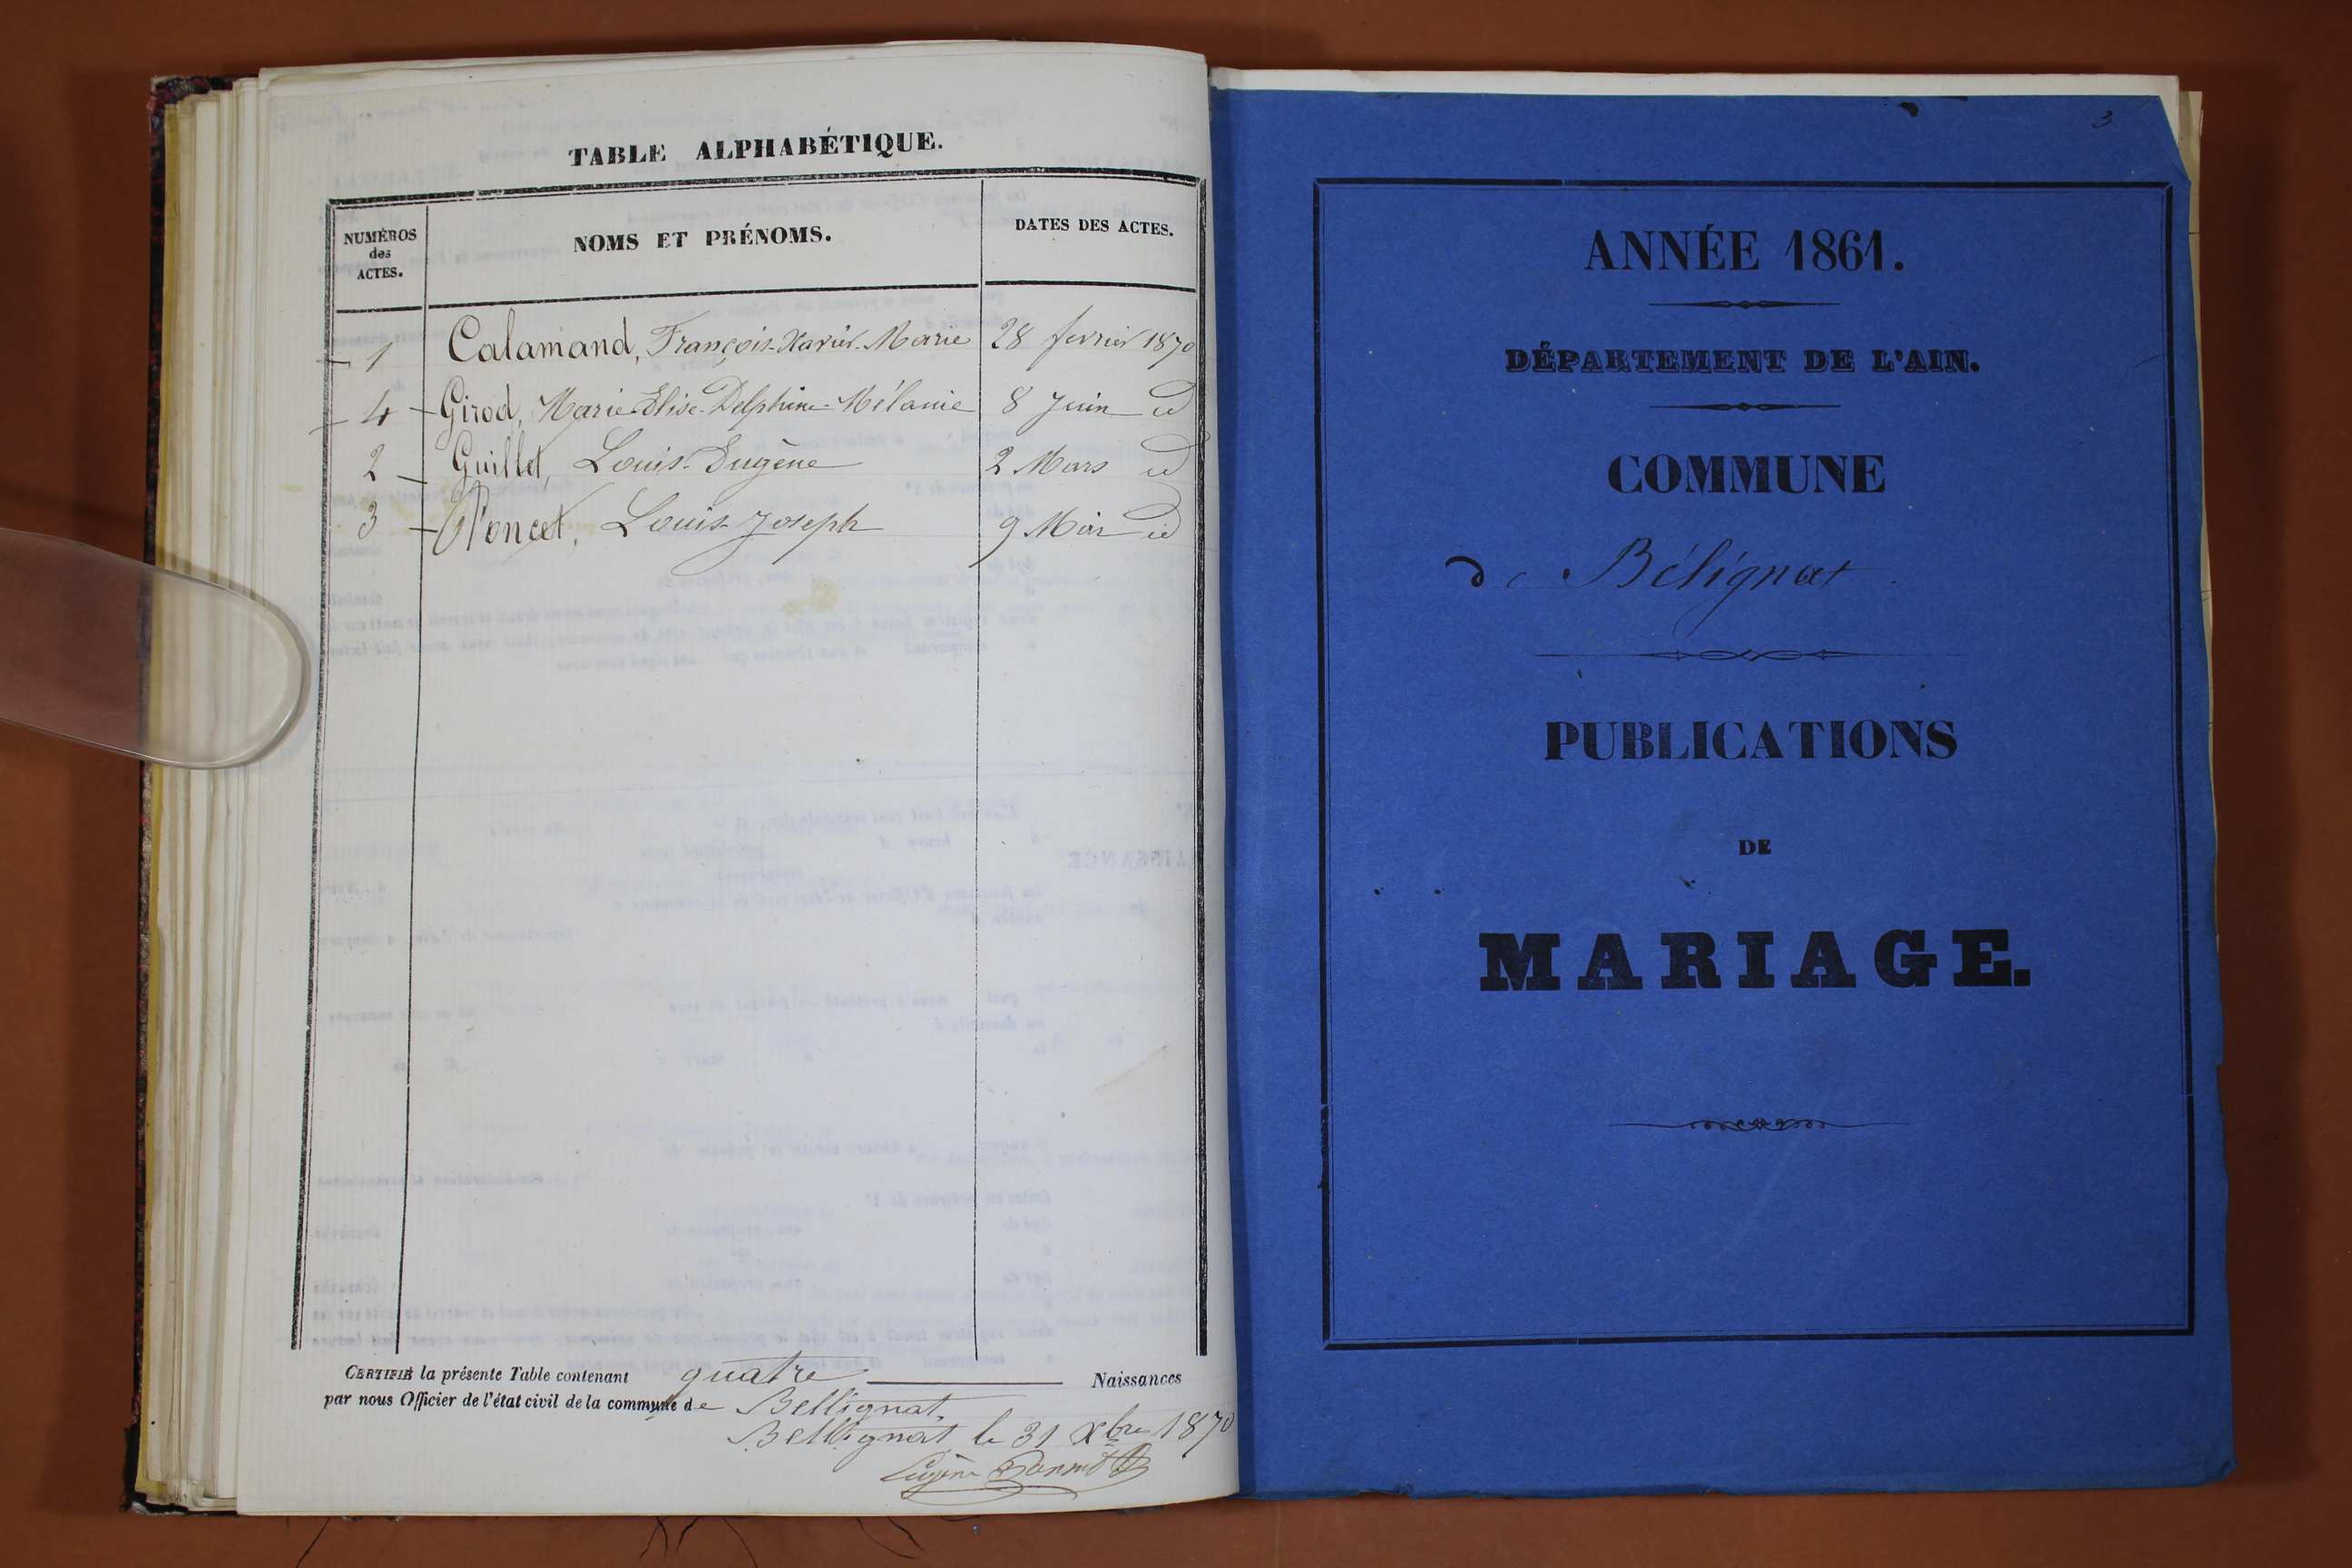 TABLE ALPHABÉTIQUE.
NUMÉROS des ACTES.
NOMS ET PRÉNOMS.
DATES DES ACTES.
1 Calamand, François-Xavier-Marie 28 fevrier 1870
4 Girod, Marie-Elise-Delphine-Mélanie 8 Juin id
2 Guillet, Louis-Eugène 2 Mars id
3 Poncet, Louis-Joseph 9 Mars id
CERTIFIÉ la présente Table contenant quatre Naissances
par nous Officier de l'état civil de la commune de Bellignat,
Bellignat le 31 Xbre 1870
Eugène
3
ANNÉE 1861.
DÉPARTEMENT DE L'AIN.
COMMUNE
de Bélignat
PUBLICATIONS
DE
MARIAGE.